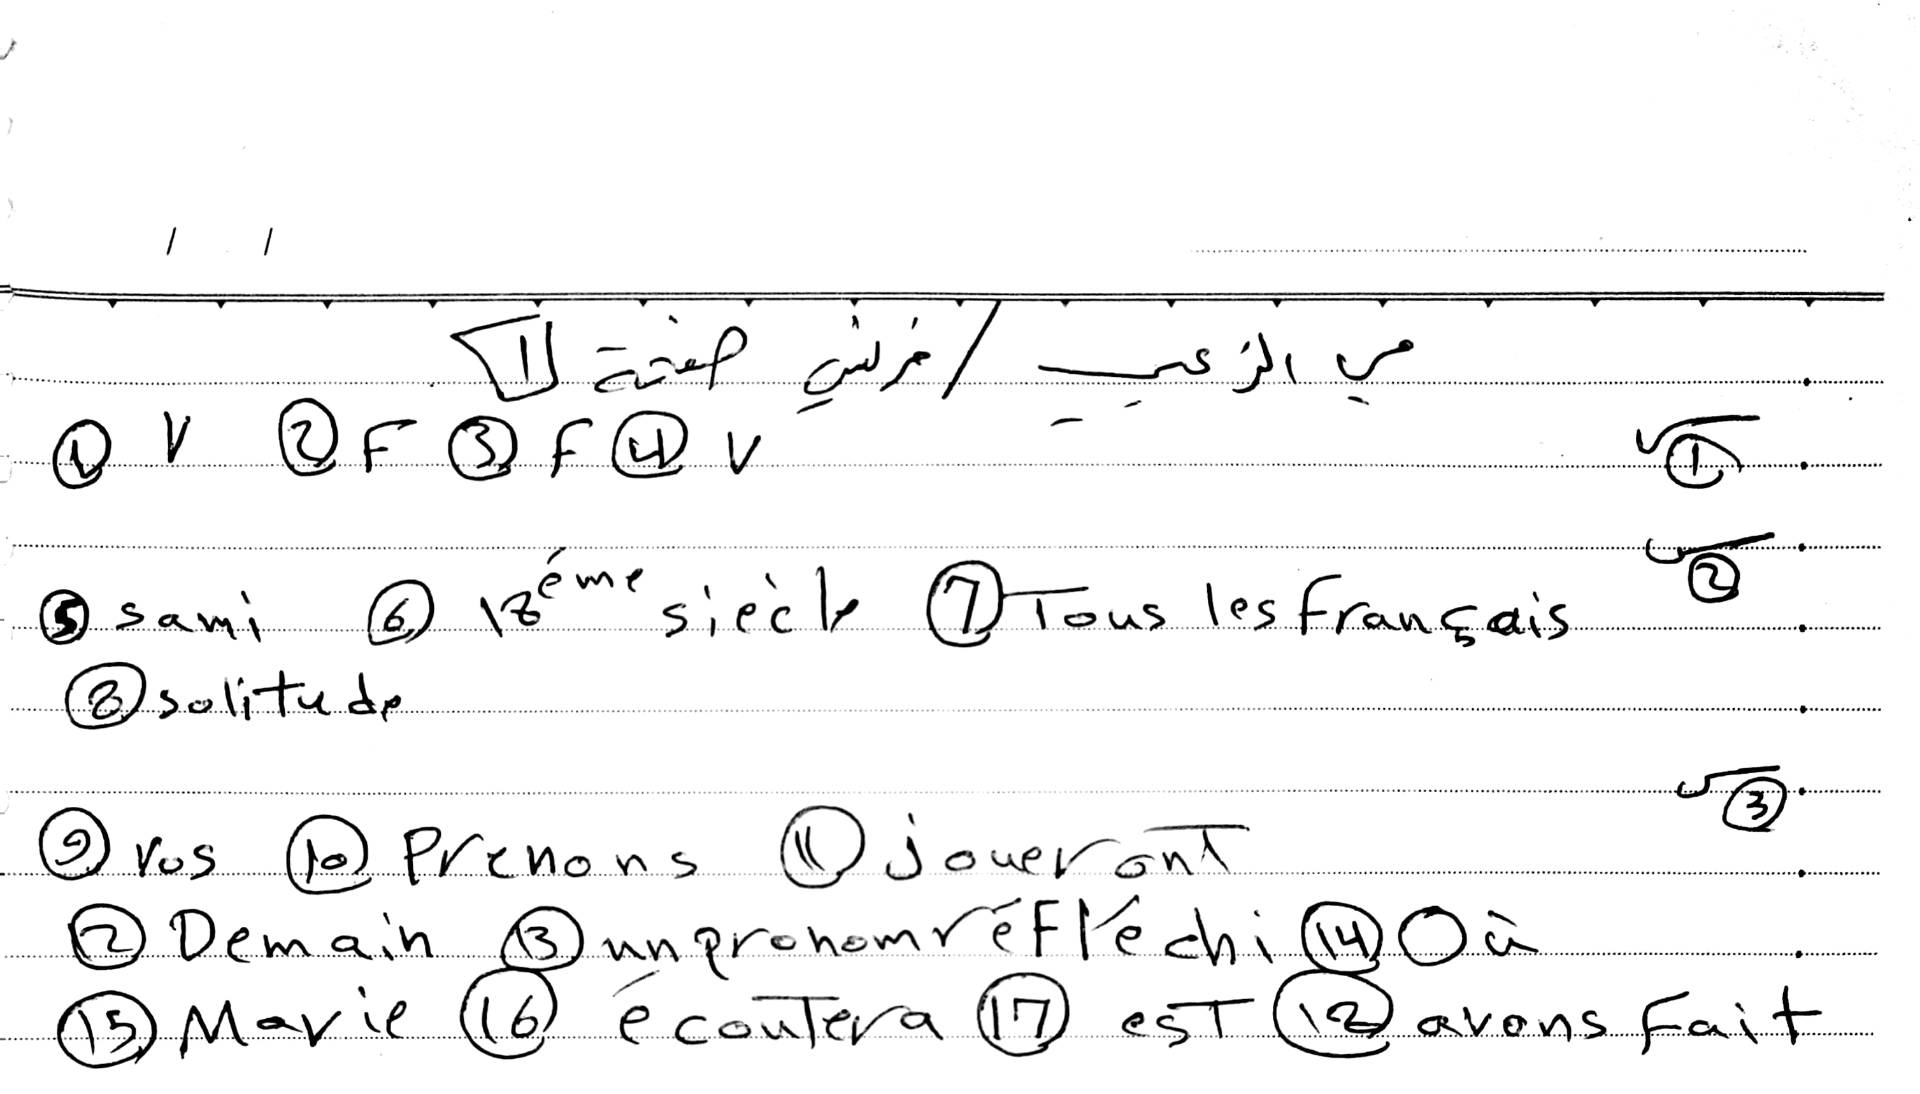 مي الزعبي / فرنسي صفحة 1
① V ② F ③ F ④ V
√①
√②
⑤ sami ⑥ 18éme siècle ⑦ Tous les français
⑧ solitude
√③
⑨ vos ⑩ Prenons ⑪ joueront
⑫ Demain ⑬ un pronom réfléchi ⑭ Où
⑮ Marie ⑯ écoutera ⑰ est ⑱ avons fait